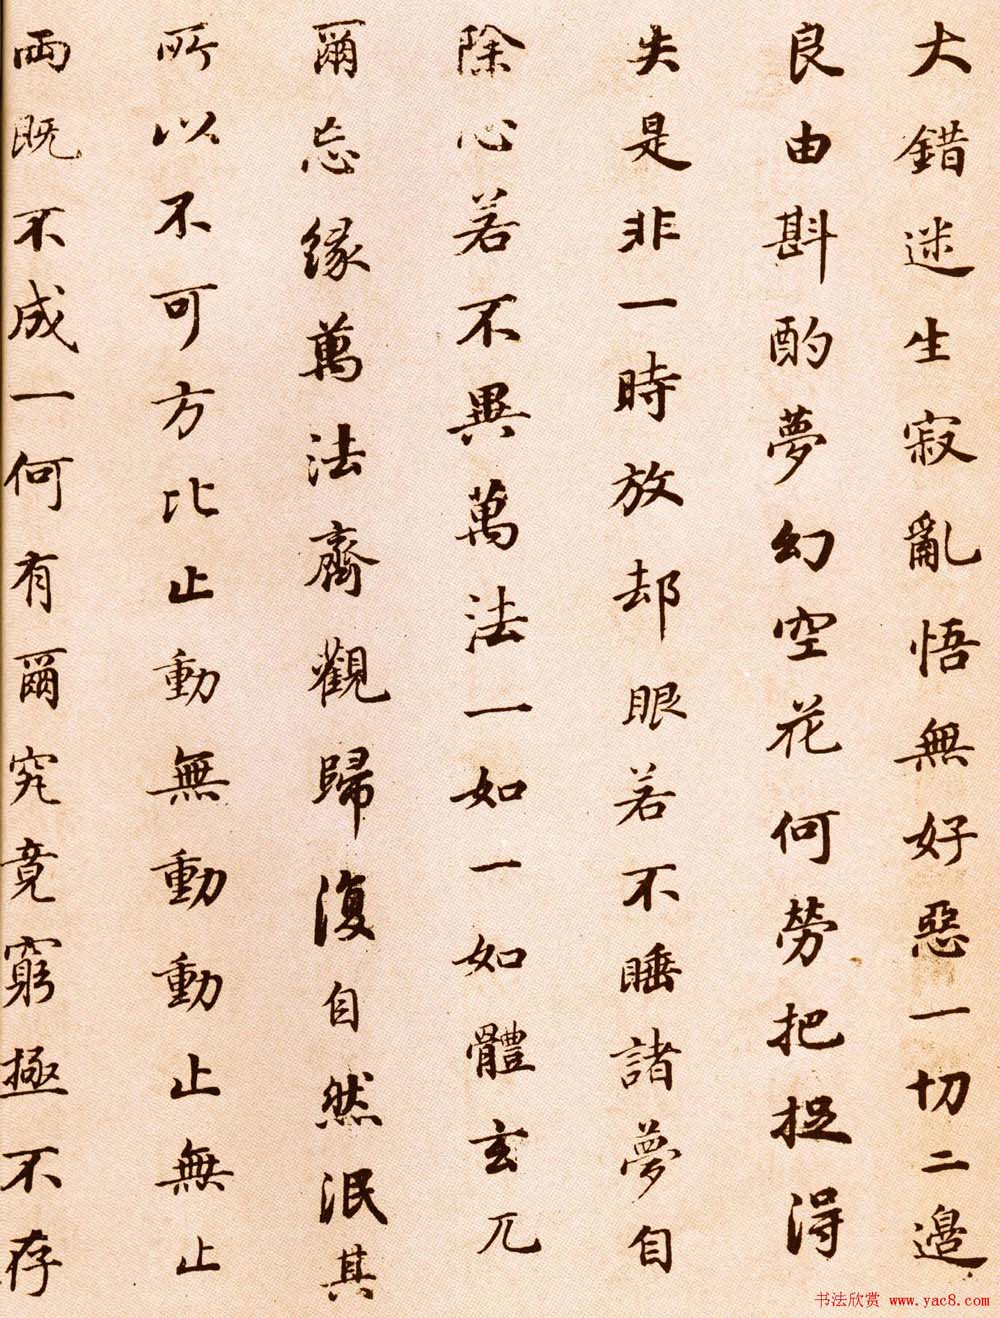 大錯迷生寂亂悟無好惡一切二邊
良由斟酌夢幻空花何勞把捉得
失是非一時放却眼若不睡諸夢自
除心若不異萬法一如一如體玄兀
爾忘緣萬法齊觀歸復自然泯其
所以不可方比止動無動動止無止
兩既不成一何有爾究竟窮極不存
书法欣赏 www.yac8.com